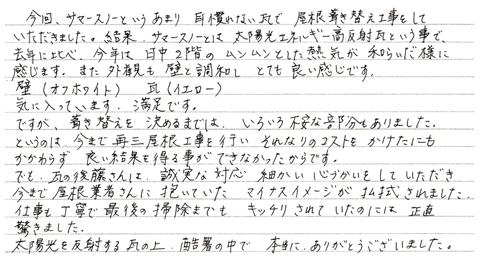 今回、サマースノーというあまり耳慣れない瓦で屋根葺き替え工事をして
いただきました。結果、サマースノーとは太陽光エネルギー高反射瓦という事で、
去年に比べ、今年は日中2階のムンムンとした熱気が和らいだ様に
感じます。また外観も壁と調和しとても良い感じです。
壁(オフホワイト) 瓦(イエロー)
気に入っています。満足です。
ですが、葺き替えを決めるまでは、いろいろ不安な部分もありました。
というのは、今まで再三屋根工事を行いそれなりのコストをかけたにも
かかわらず良い結果を得る事ができなかったからです。
でも、瓦の後藤さんは、誠実な対応細かい心づかいをしていただき
今まで屋根業者さんに抱いていたマイナスイメージが払拭されました。
仕事も丁寧で最後の掃除までもキッチリされていたのには正直
驚きました。
太陽光を反射する瓦の上、酷暑の中で本当に、ありがとうございました。